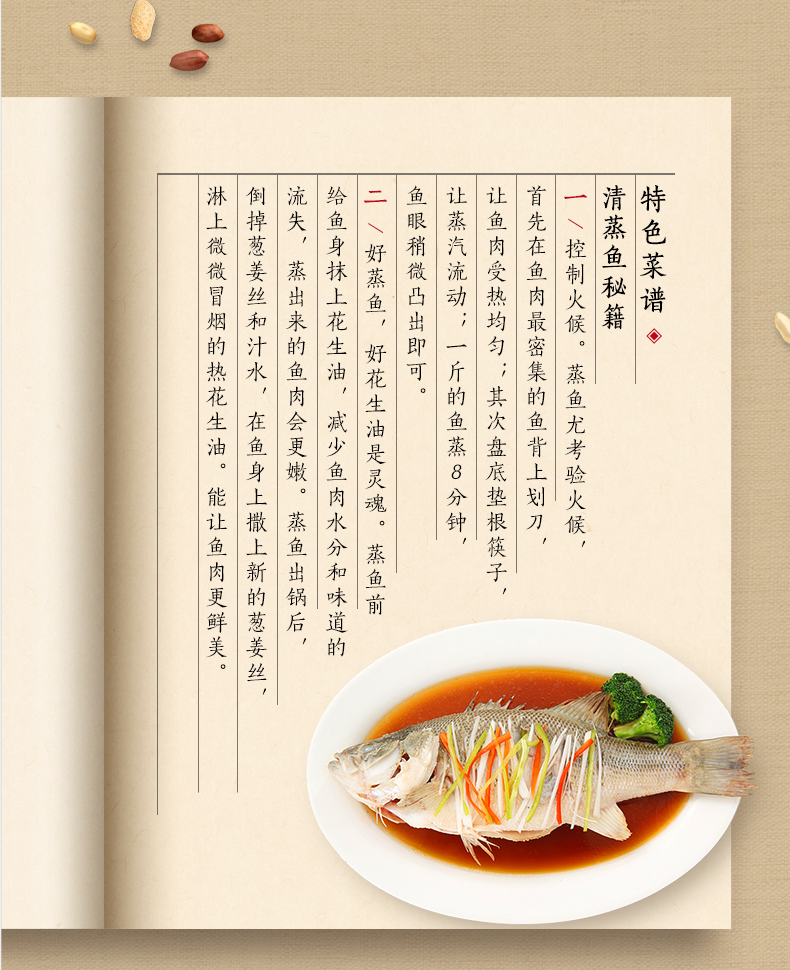 特色菜谱
清蒸鱼秘籍
一/控制火候。蒸鱼尤考验火候，
首先在鱼肉最密集的鱼背上划刀，
让鱼肉受热均匀；其次盘底垫根筷子，
让蒸汽流动；一斤的鱼蒸8分钟，
鱼眼稍微凸出即可。
二/好蒸鱼，好花生油是灵魂。蒸鱼前
给鱼身抹上花生油，减少鱼肉水分和味道的
流失，蒸出来的鱼肉会更嫩。蒸鱼出锅后，
倒掉葱姜丝和汁水，在鱼身上撒上新的葱姜丝，
淋上微微冒烟的热花生油。能让鱼肉更鲜美。